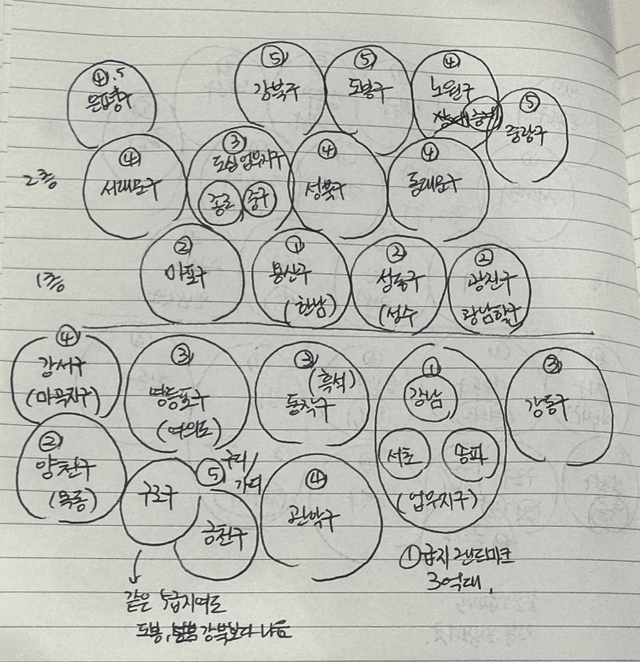 ④.5
은평구
⑤
강북구
⑤
도봉구
④
노원구
⑤
중랑구
2층
④
서대문구
③
도심 업무지구
종로
중구
④
성북구
④
동대문구
1층
②
마포구
①
용산구
(한남)
②
성동구
(성수
②
광진구
광남학군
④
강서구
(마곡지구)
③
영등포구
(여의도)
③
(흑석)
동작구
①
강남
서초
송파
(업무지구)
③
강동구
②
양천구
(목동)
구로구
⑤
구디/
가디
금천구
④
관악구
①급지 랜드마크
3억대,
같은 5급지여도
도봉, 강북보다 나음